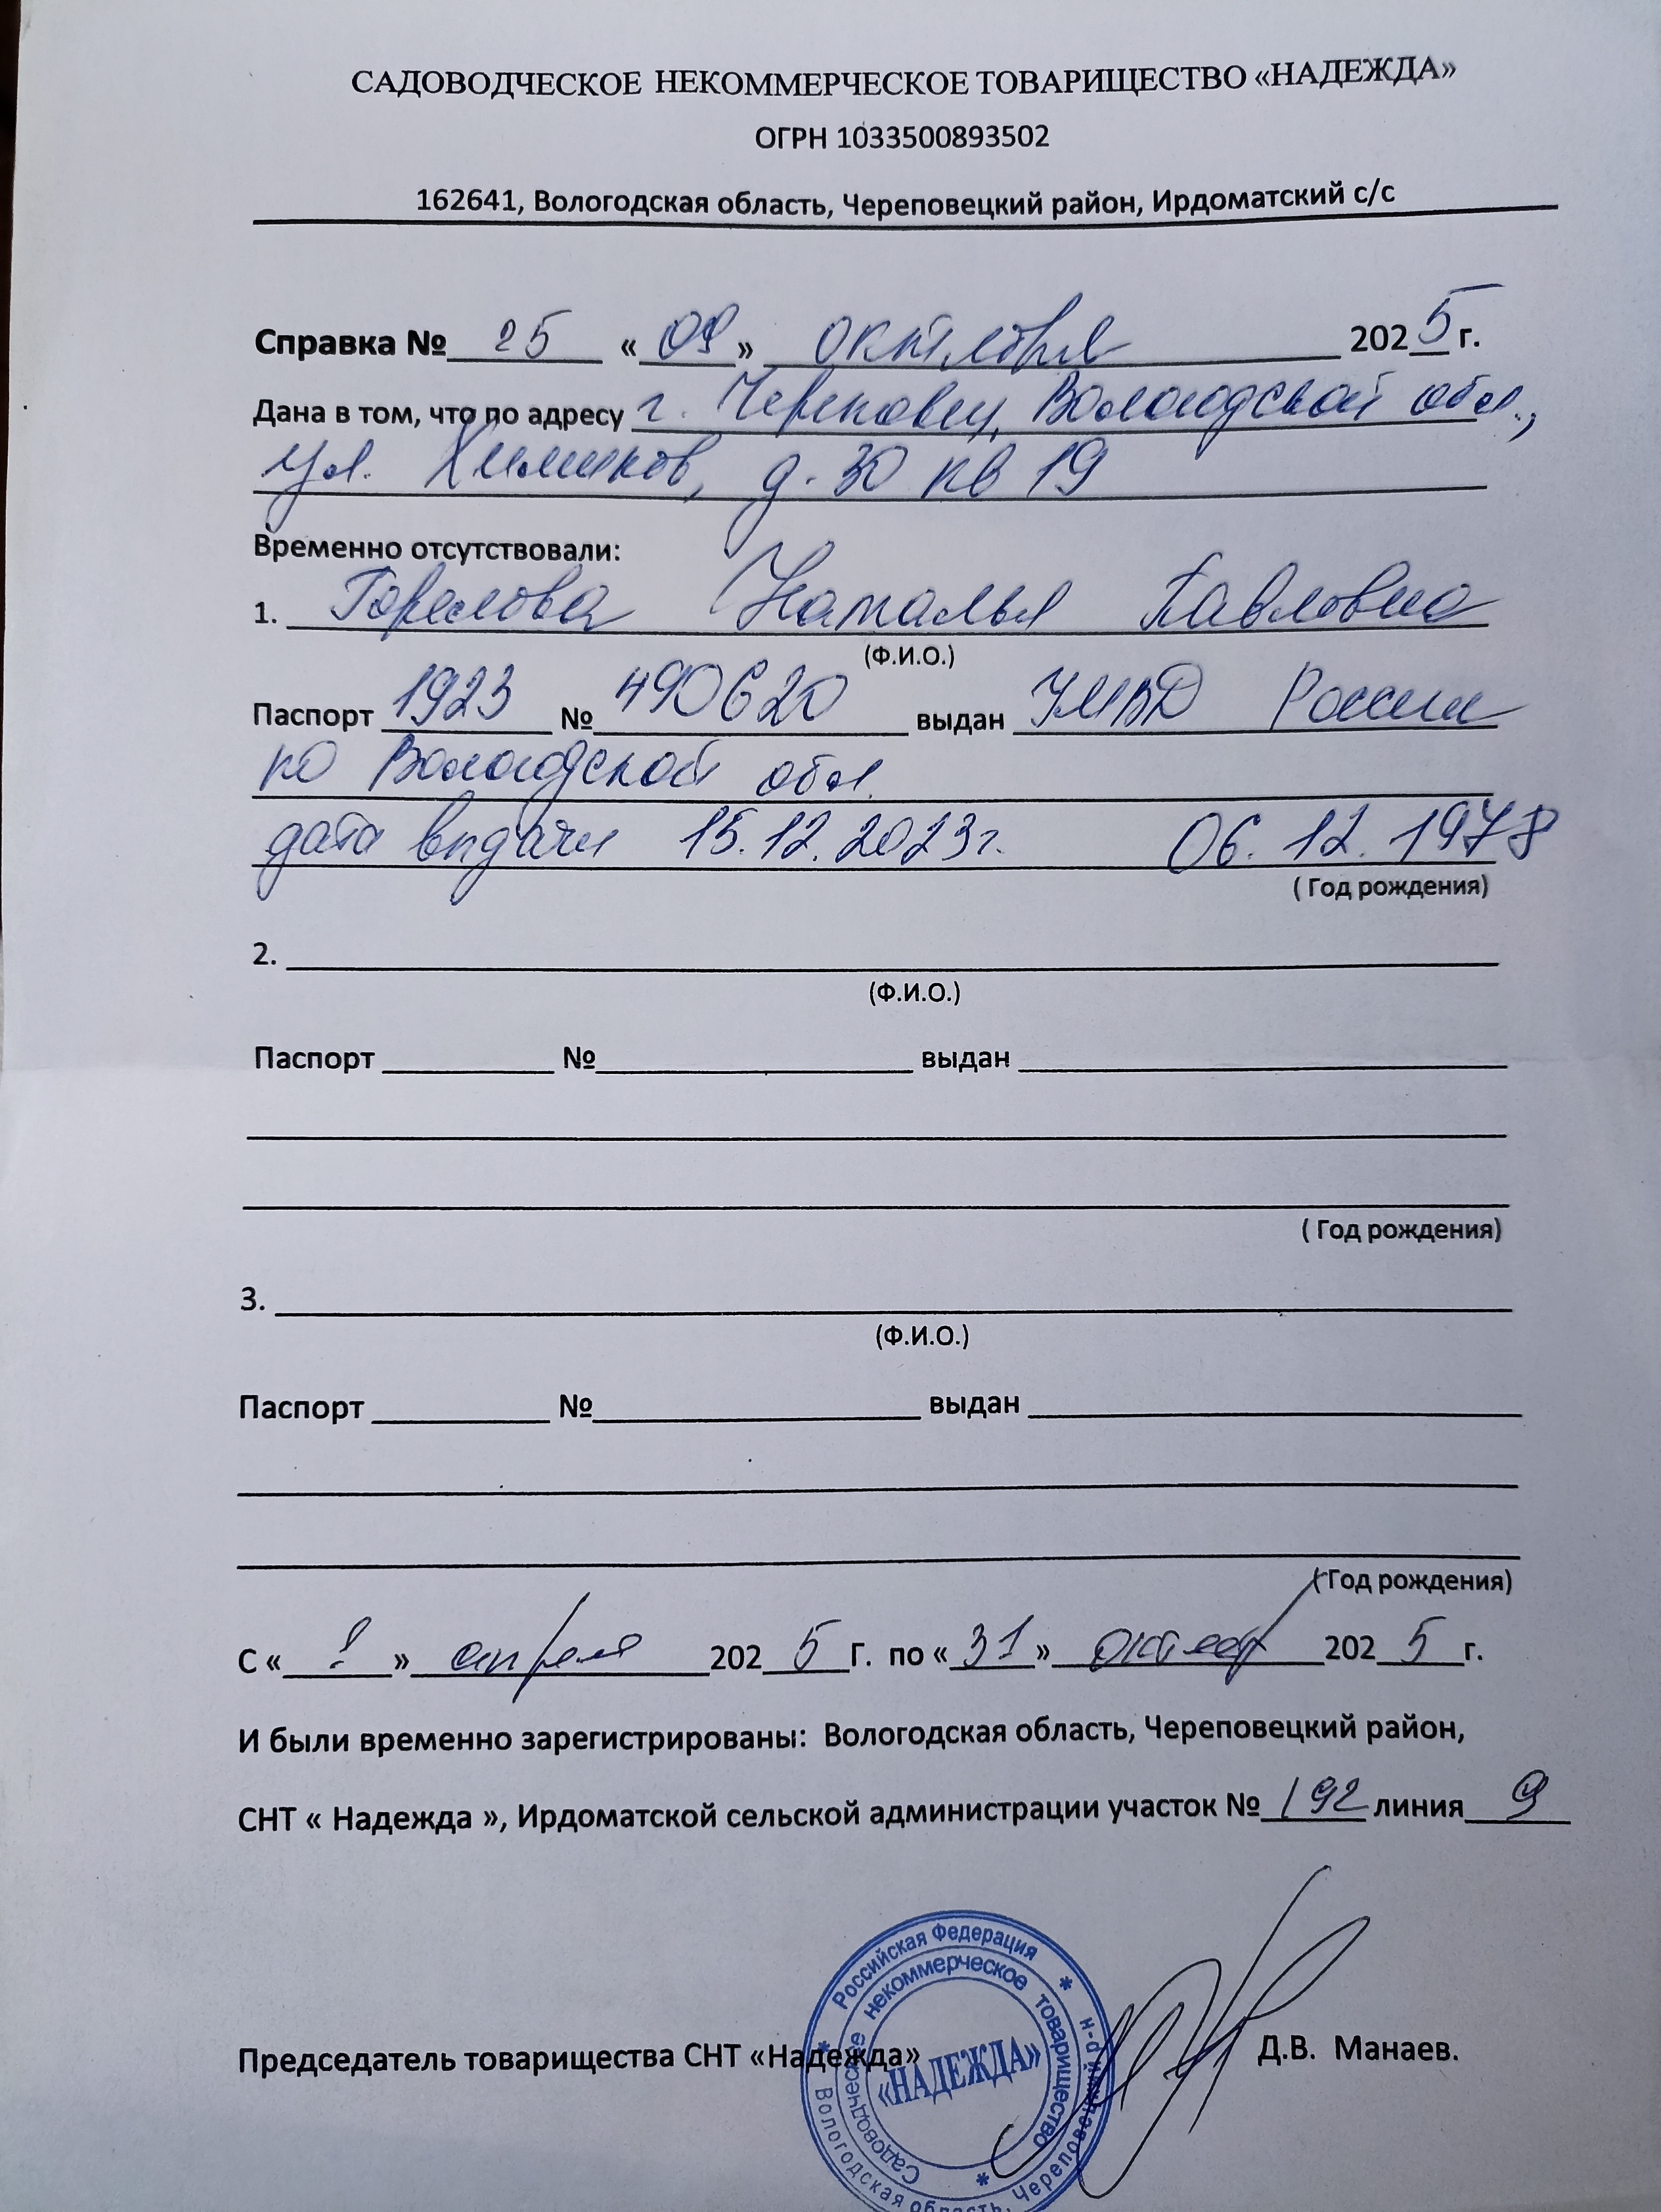 САДОВОДЧЕСКОЕ НЕКОММЕРЧЕСКОЕ ТОВАРИЩЕСТВО «НАДЕЖДА»
ОГРН 1033500893502
162641, Вологодская область, Череповецкий район, Ирдоматский с/с
Справка № 25 «09» октября 2025 г.
Дана в том, что по адресу г. Череповец, Вологодской обл.,
ул. Химиков, д. 30 кв 19
Временно отсутствовали:
1. Горелова Наталья Павловна
(Ф.И.О.)
Паспорт 1923 № 490620 выдан УМВД России
по Вологодской обл.
дата выдачи 15.12.2023г. 06.12.1978
( Год рождения)
2.
(Ф.И.О.)
Паспорт № выдан
( Год рождения)
3.
(Ф.И.О.)
Паспорт № выдан
( Год рождения)
С « » апреля 2025 Г. по «31» 2025 г.
И были временно зарегистрированы: Вологодская область, Череповецкий район,
СНТ « Надежда », Ирдоматской сельской администрации участок № 192 линия 9
Председатель товарищества СНТ «Надежда» Д.В. Манаев.
Российская Федерация * Вологодская область, Череповецкий р-н *
Садоводческое некоммерческое товарищество *
«НАДЕЖДА»